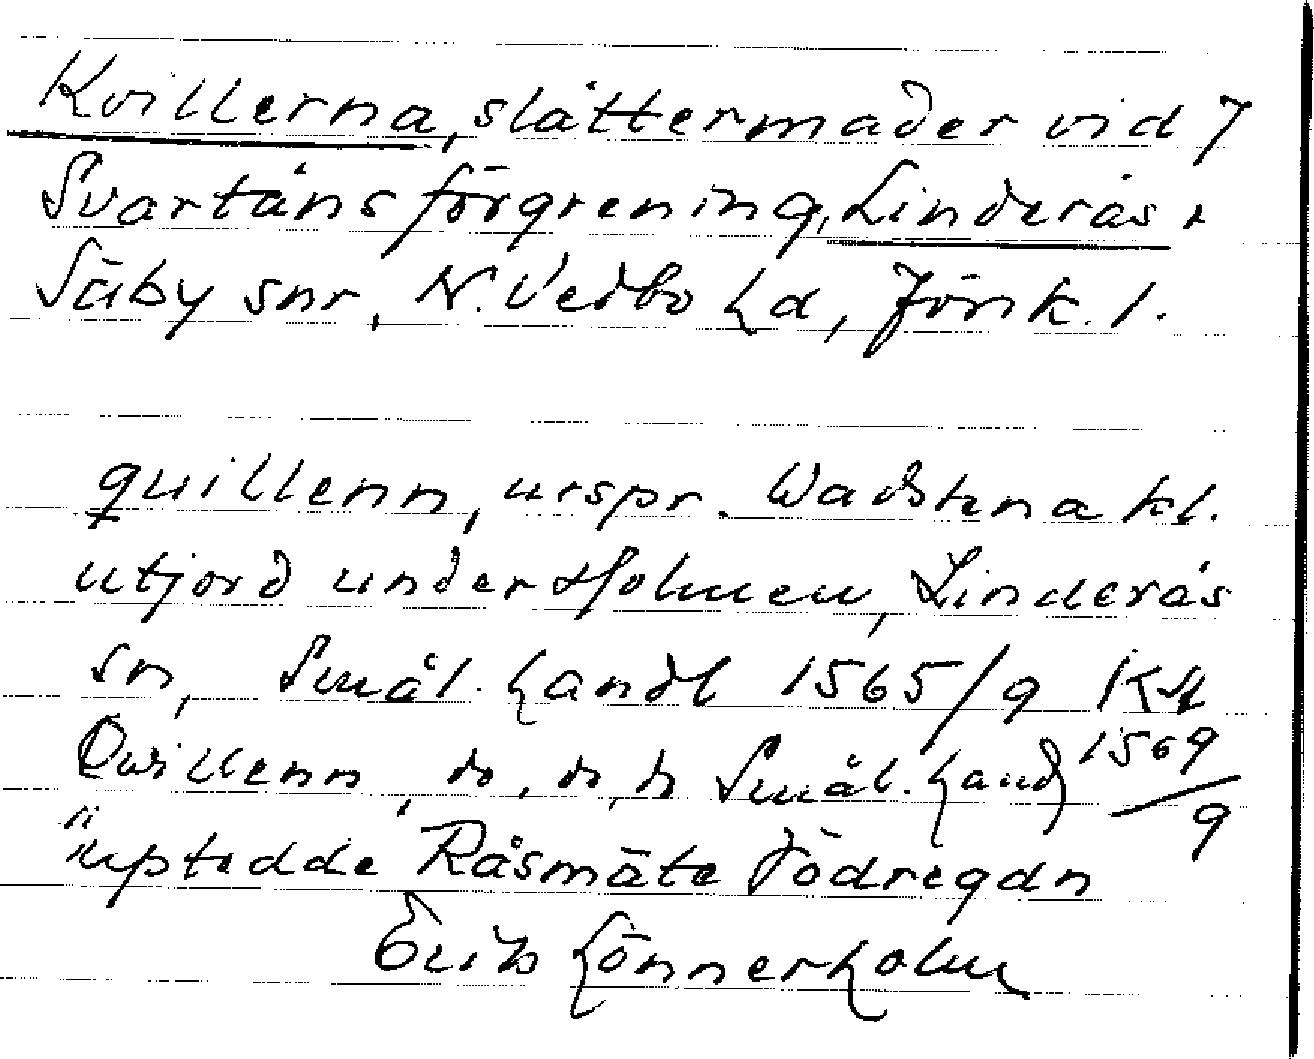 Kvillerna, slåttermader vid 7
Svartåns förgrening, Linderås
Säby snr, N. Vedbo hd, Jönk. l.
quillenn, urspr. Wadstena kl.
utjord under Holmen, Linderås
sn, Smål. handl 1565/9
Quillenn, Smål. hand 1569/9
Råsmäte Södregdn
Erik Lönnerholm